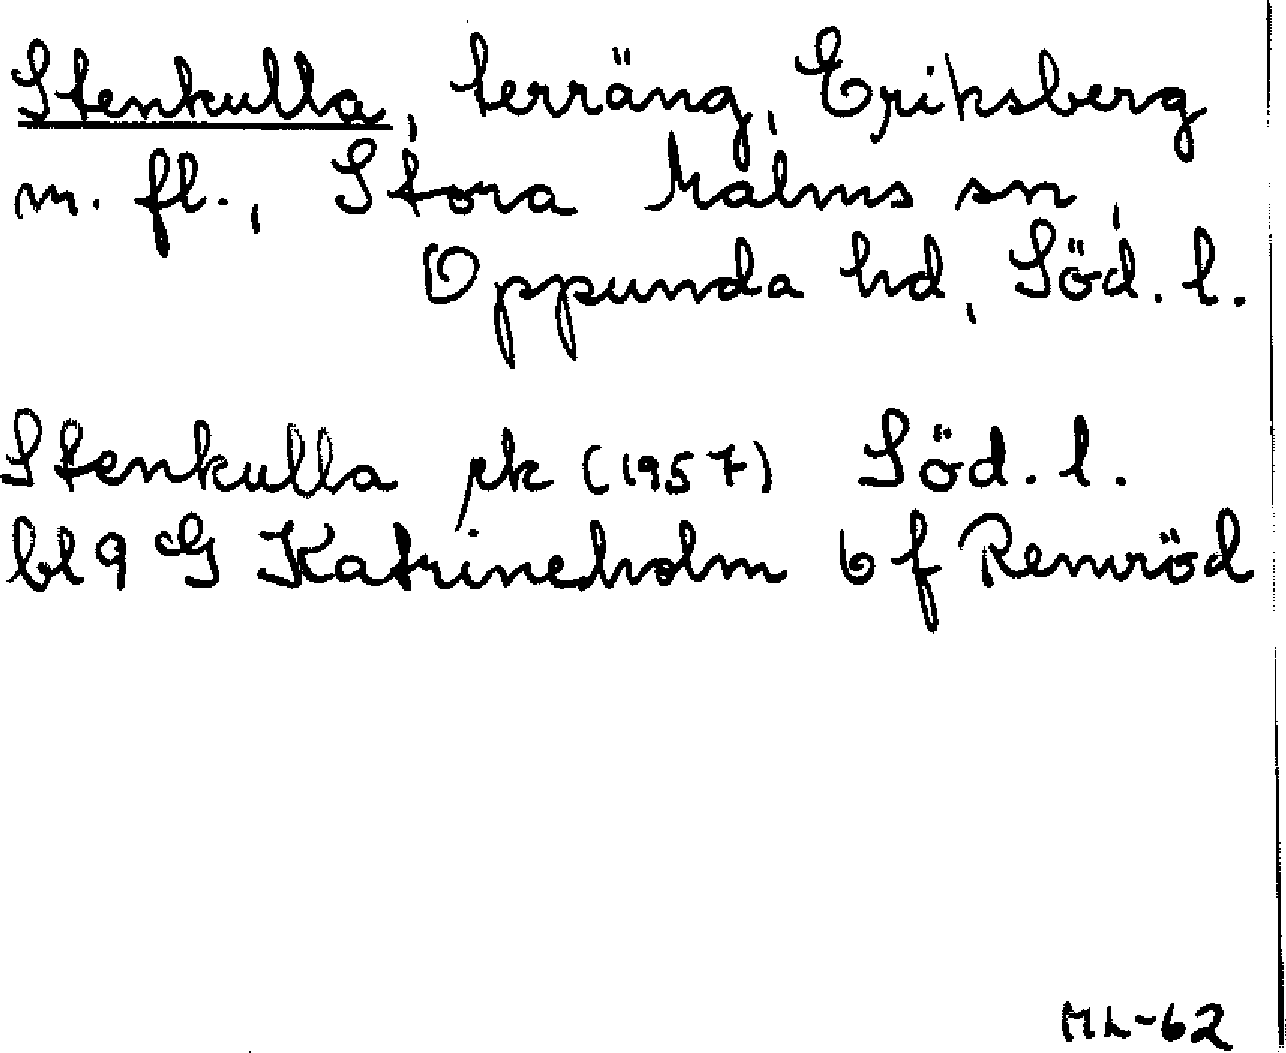 Stenkulla, terräng, Eriksberg
m. fl., Stora Malms sn,
Oppunda hd, Söd. l.
Stenkulla pk (1957) Söd. l.
bl 9 G Katrineholm 6 f Remröd
ML-62